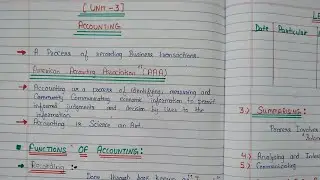 [UNIT-3]
ACCOUNTING
A Process of recording Business transactions.
American Accounting Association "(AAA)
Accounting as a process of identifying, measuring and
Community Communicating economic information to permit
informed judgements and decision by users to the
information
Accounting is Science an Art.
FUNCTIONS OF ACCOUNTING:
Recording:
Done through book known
Date Particular
3.) Summarising:
Process Involve
4.) Analysing and
5.) Communicating